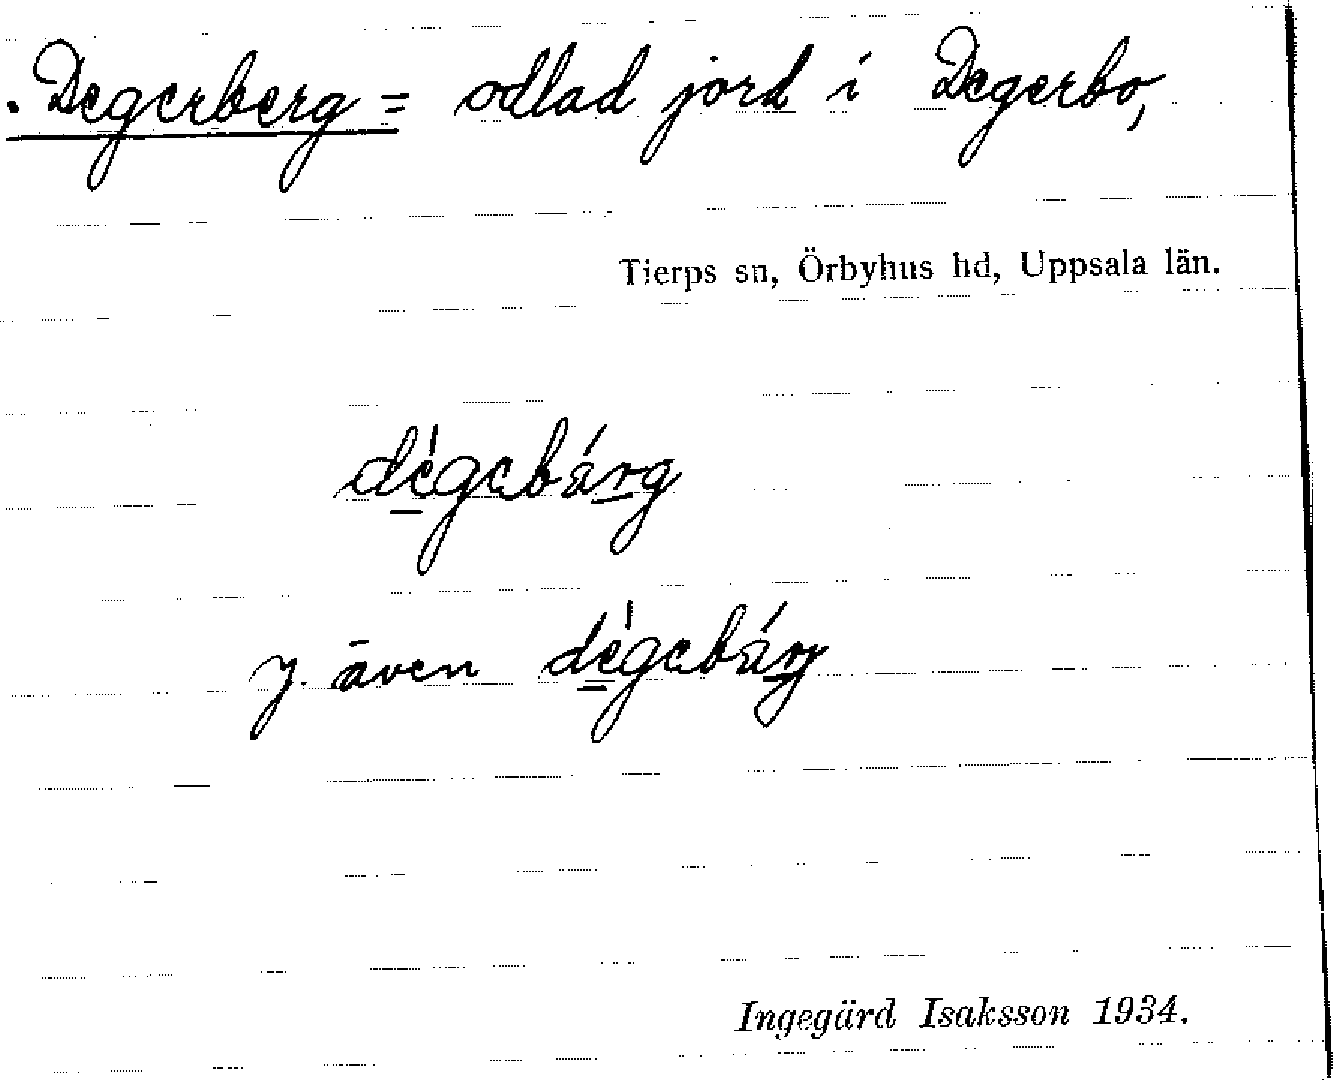 . Degerberg = odlad jord i Degerbo,
Tierps sn, Örbyhus hd, Uppsala län.
dégebárg
y. även dégebárg
Ingegärd Isaksson 1934.